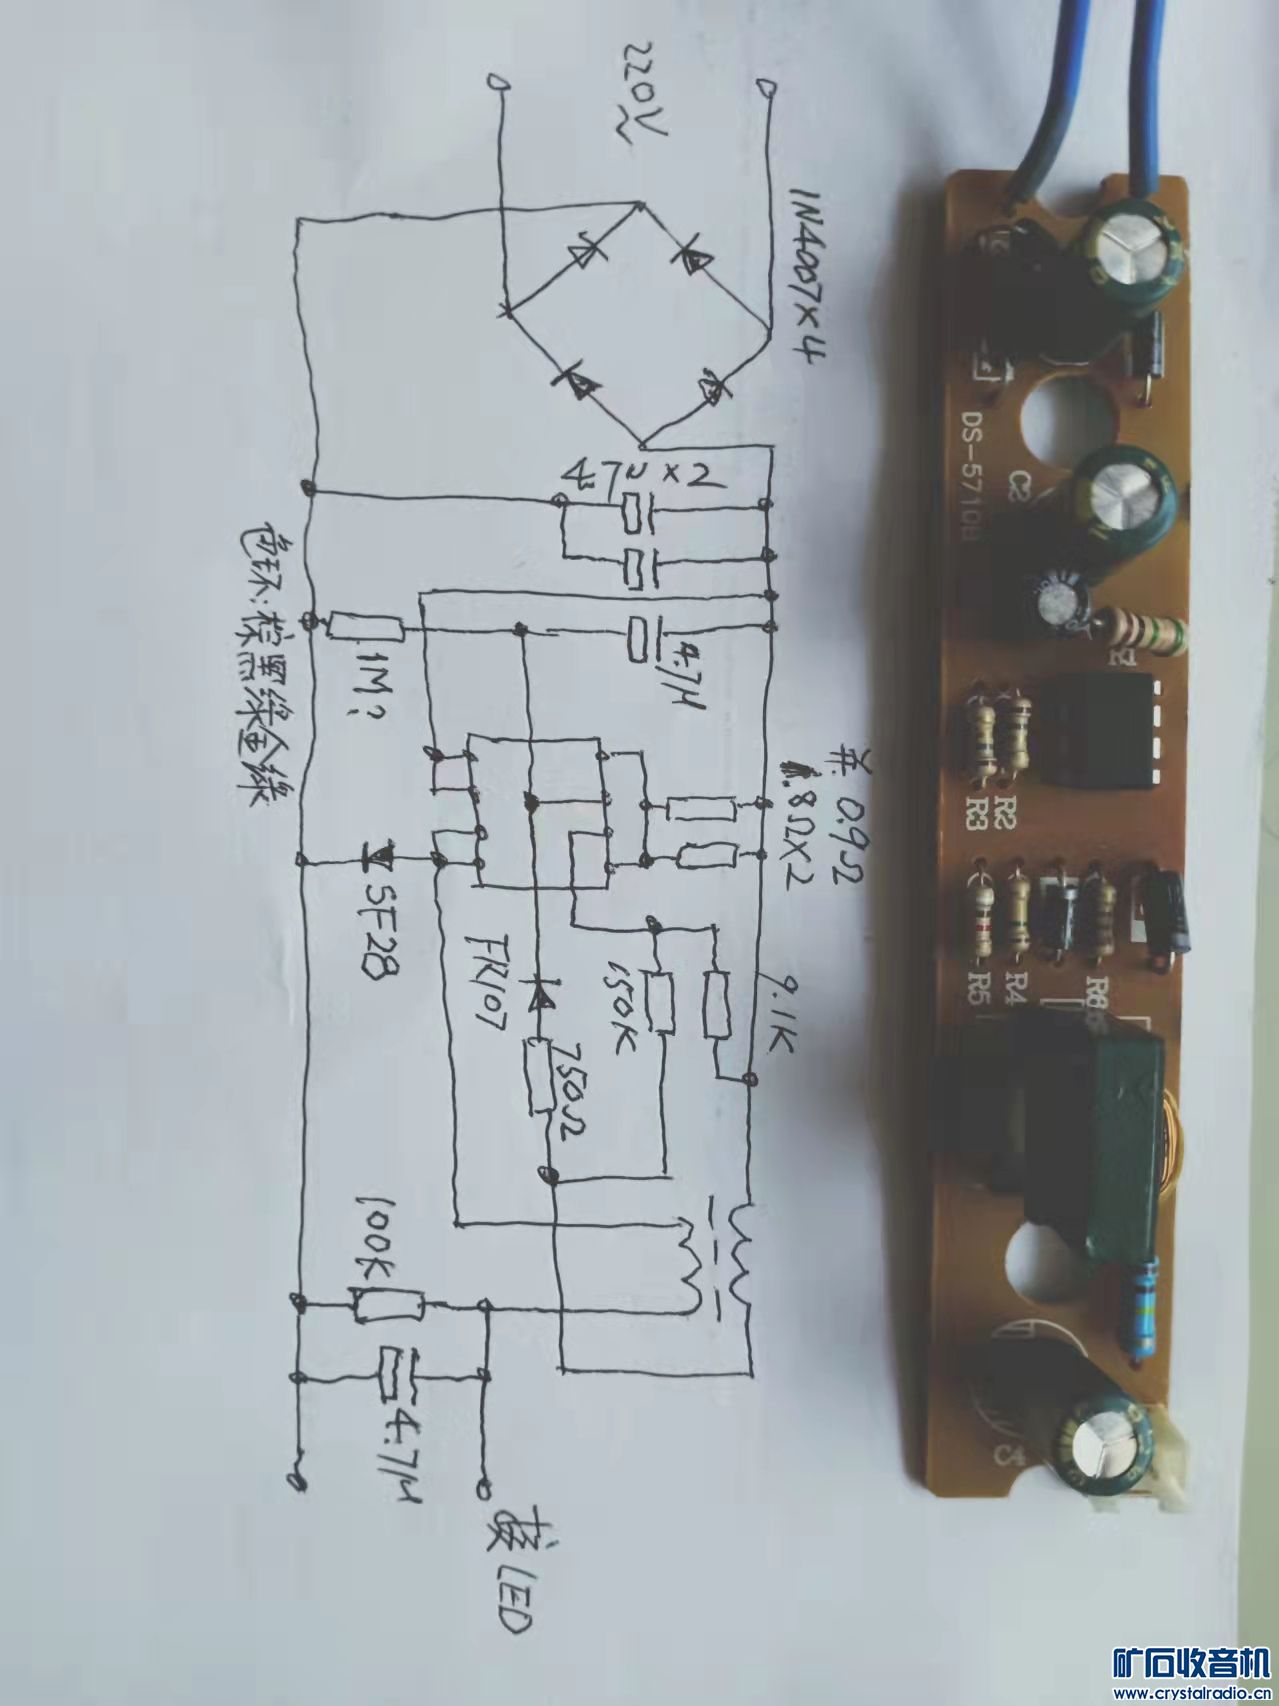 220V
~
1N4007×4
4.7u×2
色环:棕黑绿金绿
1M?
4.7μ
并:0.9Ω
1.8Ω×2
SF28
FR107
750Ω
150K
9.1K
100K
4.7μ
接LED
DS-5710B
C2
R3
R2
R5
R4
R6
C4
矿石收音机
www.crystalradio.cn